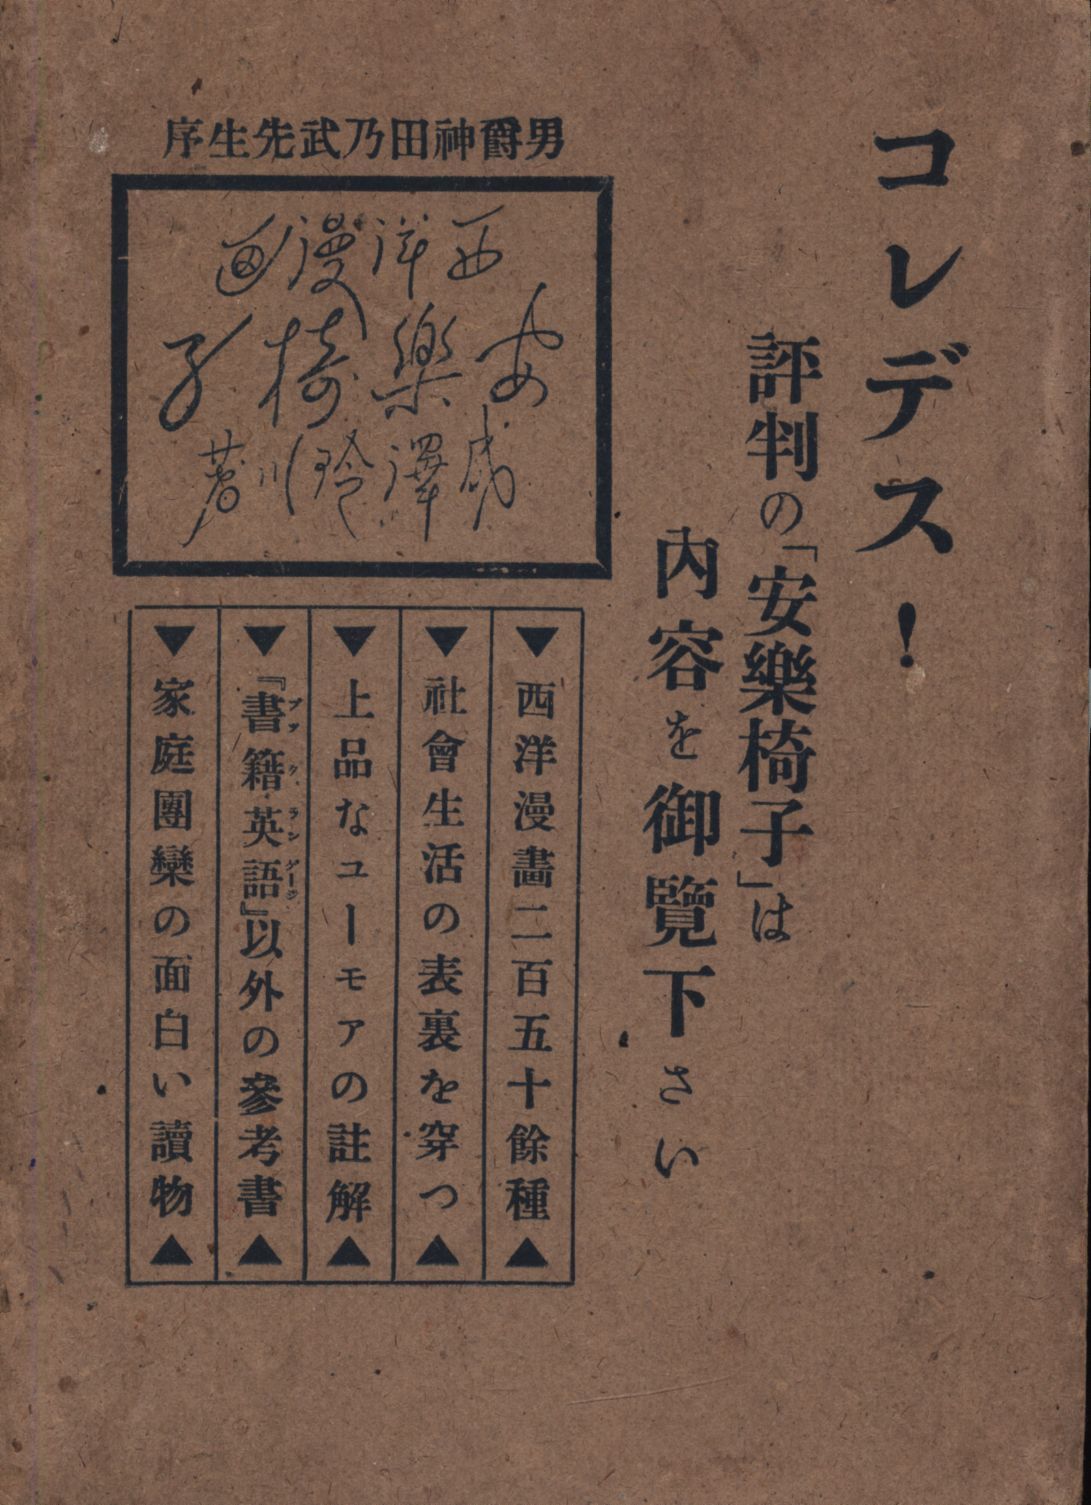 コレデス！
評判の「安樂椅子」は
內容を御覽下さい
男爵神田乃武先生序
西洋漫画
安樂椅子
咸澤玲川著
▼西洋漫畵二百五十餘種▲
▼社會生活の表裏を穿つ▲
▼上品なユーモアの註解▲
▼『書籍英語』以外の參考書▲
ブック・ランゲージ
▼家庭團欒の面白い讀物▲